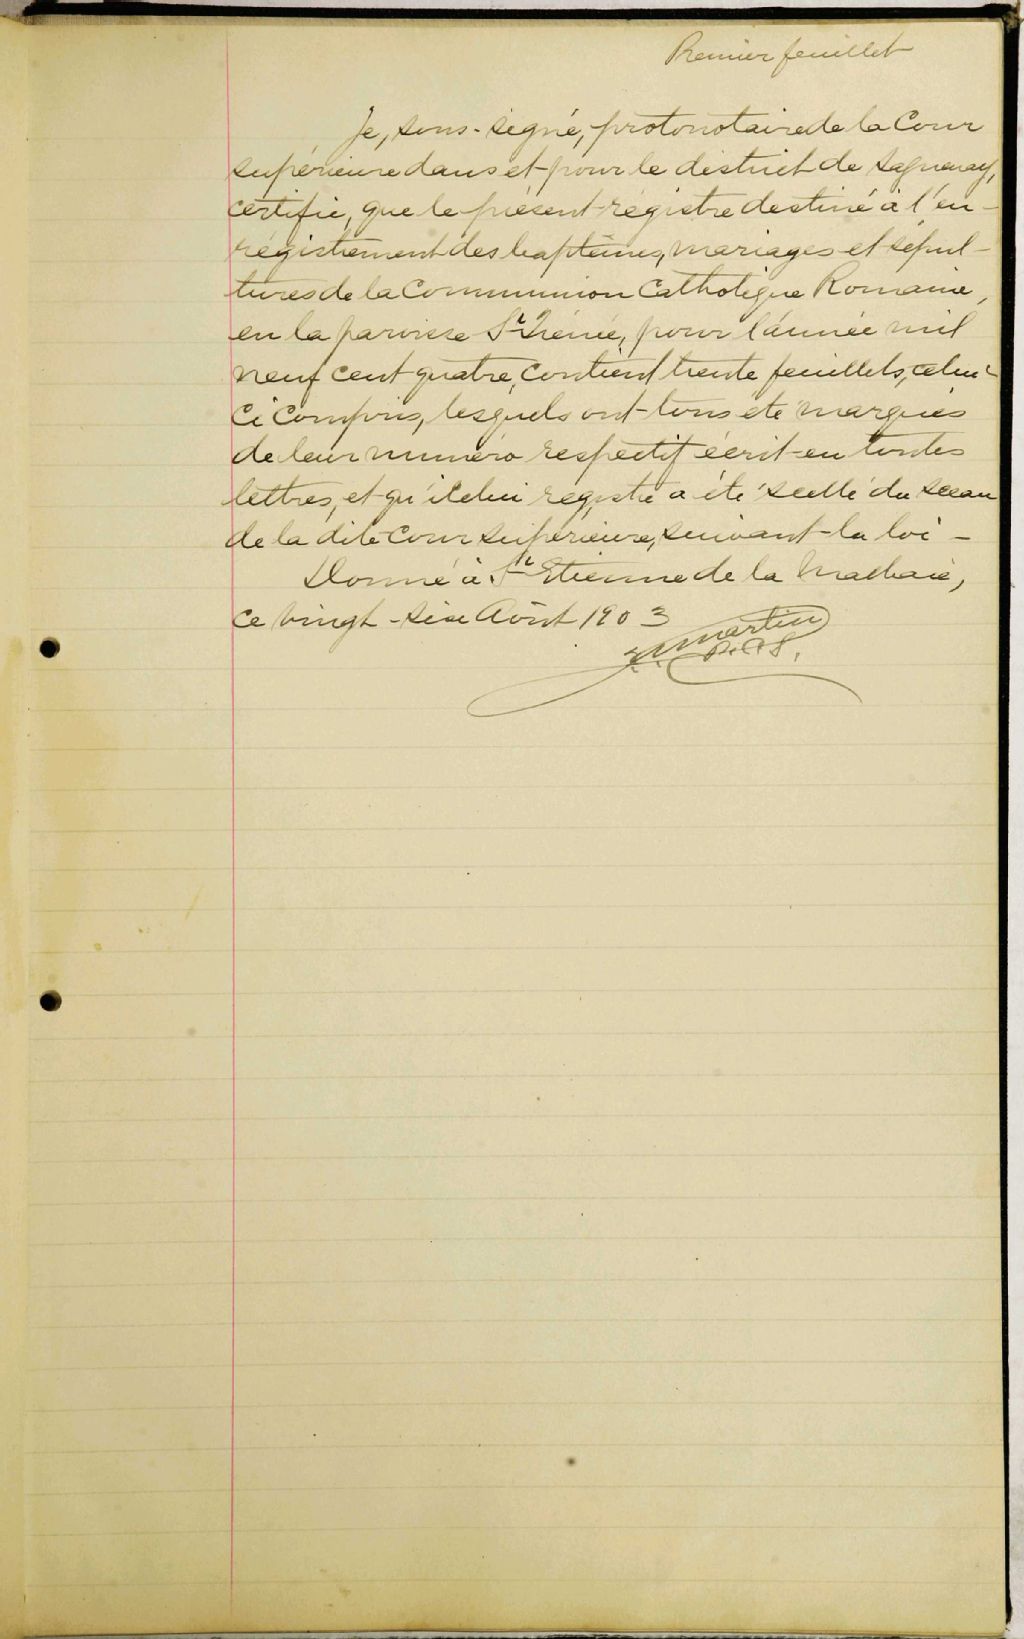 Premier feuillet
Je, sous-signé, protonotaire de la Cour
supérieure dans et pour le district de Saguenay,
certifie, que le présent régistre destiné à l'en-
régistrement des baptêmes, mariages et sépul-
tures de la Communion Catholique Romaine,
en la paroisse St Irénée, pour l'année mil
neuf cent quatre, contient trente feuillets, celui-
ci compris, lesquels ont tous été marqués
de leur numéro respectif écrit en toutes
lettres, et qu'icelui registre a été scellé du sceau
de la dite Cour Supérieure, suivant la loi -
Donné à St Etienne de la Malbaie,
ce vingt-six Août 1903
Martin
P.C.S.